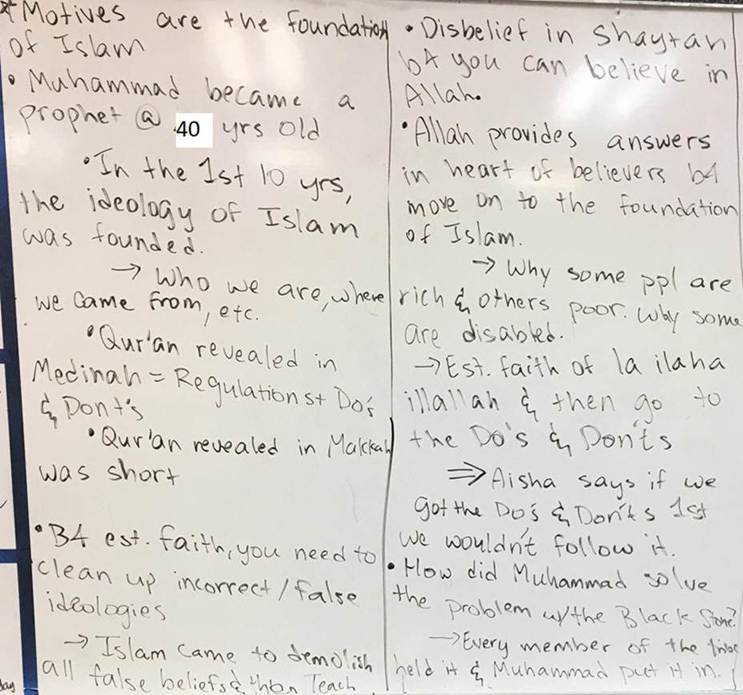 * Motives are the foundation
of Islam
• Muhammad became a
prophet @ 40 yrs old
• In the 1st 10 yrs,
the ideology of Islam
was founded.
→ Who we are, where
we came from, etc.
• Qur'an revealed in
Medinah = Regulations + Do's
& Dont's
• Qur'an revealed in Makkah
was short
• B4 est. faith, you need to
clean up incorrect / false
ideologies
→ Islam came to demolish
all false beliefs & then Teach
• Disbelief in Shaytan
b4 you can believe in
Allah.
• Allah provides answers
in heart of believers b4
move on to the foundation
of Islam.
→ Why some ppl are
rich & others poor. Why some
are disabled.
→ Est. faith of la ilaha
illallah & then go to
the Do's & Don'ts
⇒ Aisha says if we
got the Do's & Don'ts 1st
we wouldn't follow it.
• How did Muhammad solve
the problem w/ the Black Stone?
→ Every member of the tribe
held it & Muhammad put it in.
day